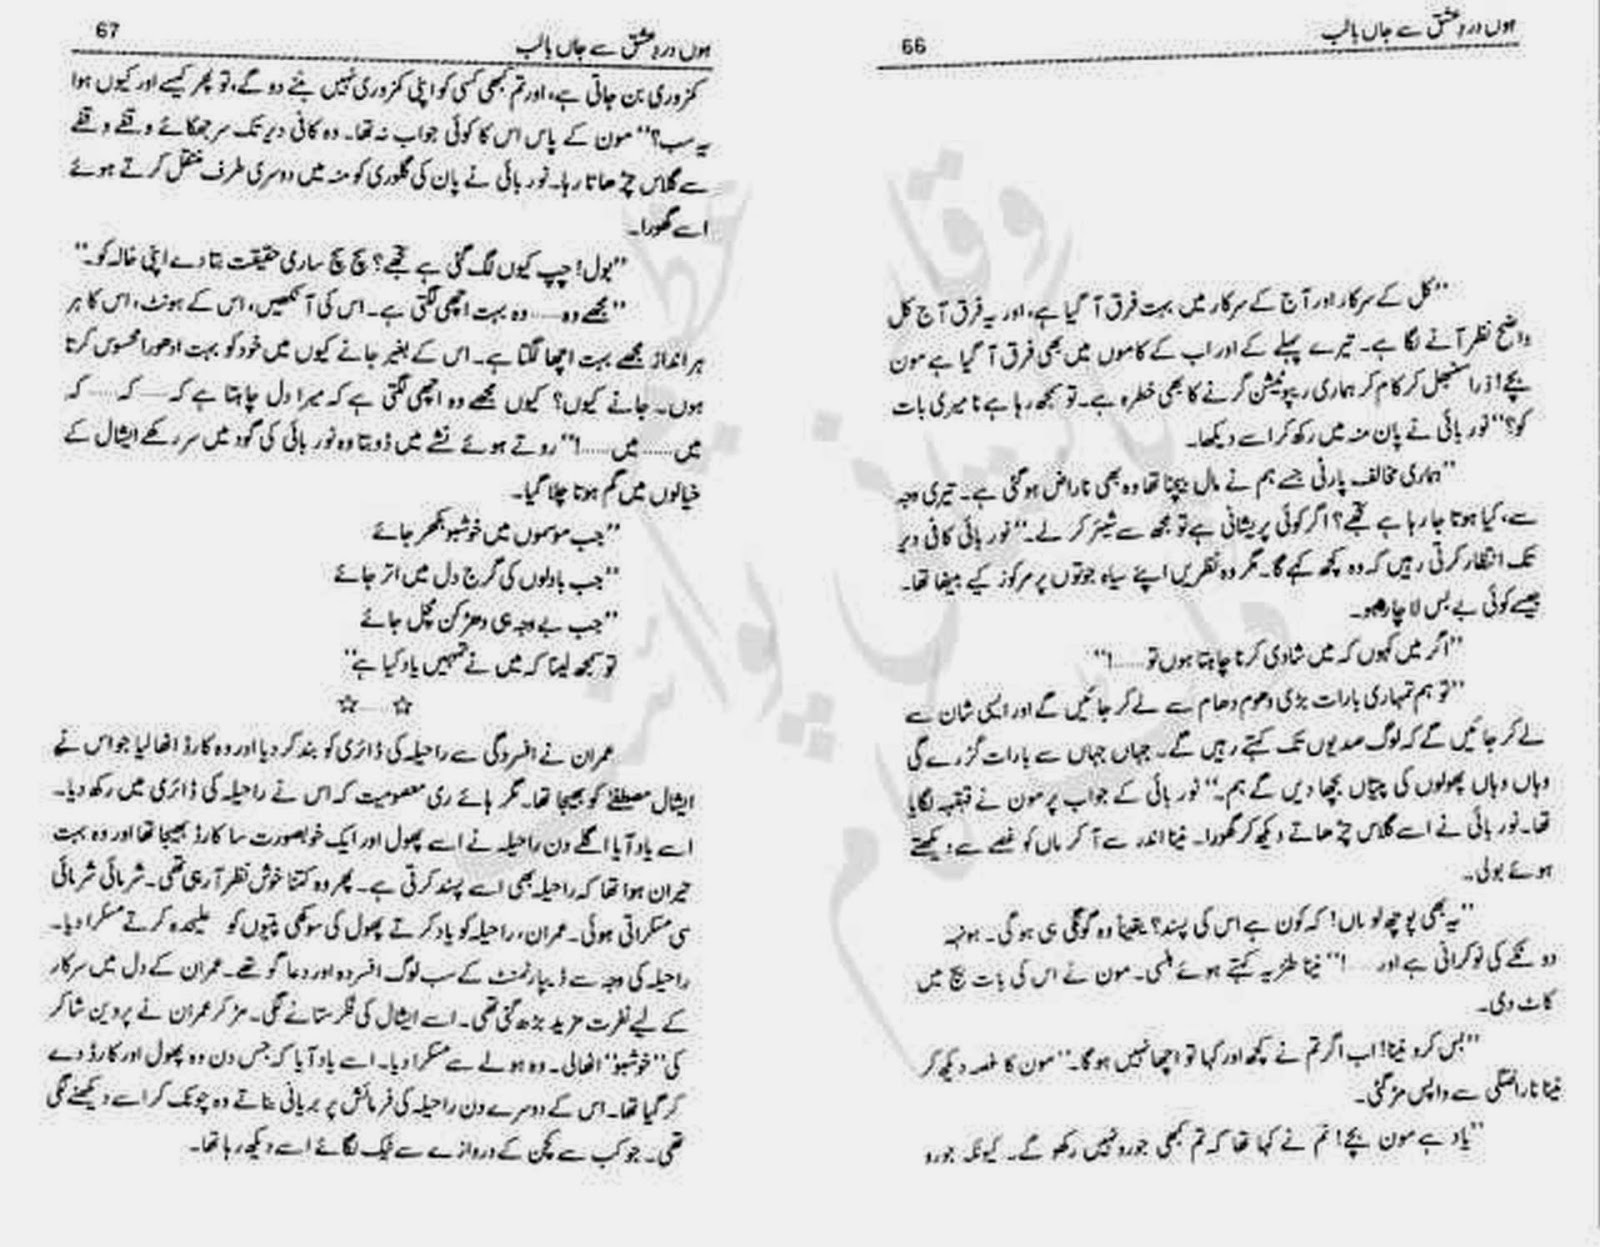 ہوں درد عشق سے جاں بالب
66
"کل کے سرکار اور آج کے سرکار میں بہت فرق آ گیا ہے، اور یہ فرق آج کل
واضح نظر آنے لگا ہے۔ تیرے پہلے کے اور اب کے کاموں میں بھی فرق آ گیا ہے مون
بچے! ذرا سنبھل کر کام کر ہماری ریپوٹیشن گرنے کا بھی خطرہ ہے۔ تو سمجھ رہا ہے نا میری بات
کو؟" نور بائی نے پان منہ میں رکھ کر اسے دیکھا۔
"ہماری مخالف پارٹی جسے ہم نے مال بیچنا تھا وہ بھی ناراض ہو گئی ہے۔ تیری وجہ
سے، کیا ہوتا جا رہا ہے تجھے؟ اگر کوئی پریشانی ہے تو مجھ سے شیئر کر لے۔" نور بائی کافی دیر
تک انتظار کرتی رہیں کہ وہ کچھ کہے گا۔ مگر وہ نظریں اپنے سیاہ جوتوں پر مرکوز کیے بیٹھا تھا۔
جیسے کوئی بے بس لاچار ہو۔
"اگر میں کہوں کہ میں شادی کرنا چاہتا ہوں تو......!"
"تو ہم تمہاری بارات بڑی دھوم دھام سے لے کر جائیں گے اور ایسی شان سے
لے کر جائیں گے کہ لوگ صدیوں تک کہتے رہیں گے۔ جہاں جہاں سے بارات گزرے گی
وہاں وہاں پھولوں کی پتیاں بچھا دیں گے ہم۔" نور بائی کے جواب پر مون نے قہقہہ لگایا
تھا۔ نور بائی نے اسے گلاس چڑھاتے دیکھ کر گھورا۔ نینا اندر سے آ کر ماں کو غصے سے دیکھتے
ہوئے بولی۔
"یہ بھی پوچھ لو ماں! کہ کون ہے اس کی پسند؟ یقیناً وہ گونگی ہی ہو گی۔ ہونہہ
دو ٹکے کی نوکرانی ہے اور......!" نینا طنزیہ کہتے ہوئے ہنسی۔ مون نے اس کی بات بیچ میں
کاٹ دی۔
"بس کرو نینا! اب اگر تم نے کچھ اور کہا تو اچھا نہیں ہو گا۔" مون کا غصہ دیکھ کر
نینا ناراضگی سے واپس مڑ گئی۔
"یاد ہے مون بچے! تم نے کہا تھا کہ تم کبھی جورو نہیں رکھو گے۔ کیونکہ جورو
ہوں درد عشق سے جاں بالب
67
کمزوری بن جاتی ہے، اور تم کبھی کسی کو اپنی کمزوری نہیں بننے دو گے، تو پھر کیسے اور کیوں ہوا
یہ سب؟" مون کے پاس اس کا کوئی جواب نہ تھا۔ وہ کافی دیر تک سر جھکائے وقفے وقفے
سے گلاس چڑھاتا رہا۔ نور بائی نے پان کی گلوری کو منہ میں دوسری طرف منتقل کرتے ہوئے
اسے گھورا۔
"بول! چپ کیوں لگ گئی ہے تجھے؟ سچ سچ ساری حقیقت بتا دے اپنی خالہ کو۔"
"مجھے وہ...... وہ بہت اچھی لگتی ہے۔ اس کی آنکھیں، اس کے ہونٹ، اس کا ہر
ہر انداز مجھے بہت اچھا لگتا ہے۔ اس کے بغیر جانے کیوں میں خود کو بہت ادھورا محسوس کرتا
ہوں۔ جانے کیوں؟ کیوں مجھے وہ اچھی لگتی ہے کہ میرا دل چاہتا ہے کہ...... کہ...... کہ
میں...... میں......!" روتے ہوئے نشے میں ڈوبتا وہ نور بائی کی گود میں سر رکھے ایشال کے
خیالوں میں گم ہوتا چلا گیا۔
"جب موسموں میں خوشبو بکھر جائے
"جب بادلوں کی گرج دل میں اتر جائے
"جب بے وجہ ہی دھڑکن مچل جائے
تو سمجھ لینا کہ میں نے تمہیں یاد کیا ہے"
☆......☆
عمران نے افسردگی سے راحیلہ کی ڈائری کو بند کر دیا اور وہ کارڈ اٹھا لیا جو اس نے
ایشال مصطفےٰ کو بھیجا تھا۔ مگر ہائے ری معصومیت کہ اس نے راحیلہ کی ڈائری میں رکھ دیا۔
اسے یاد آیا اگلے دن راحیلہ نے اسے پھول اور ایک خوبصورت سا کارڈ بھیجا تھا اور وہ بہت
حیران ہوا تھا کہ راحیلہ بھی اسے پسند کرتی ہے۔ پھر وہ کتنا خوش نظر آ رہی تھی۔ شرمائی شرمائی
سی مسکراتی ہوئی۔ عمران، راحیلہ کو یاد کرتے پھول کی سوکھی پتیوں کو علیحدہ کرتے مسکرا دیا۔
راحیلہ کی وجہ سے ڈیپارٹمنٹ کے سب لوگ افسردہ اور دعا گو تھے۔ عمران کے دل میں سرکار
کے لیے نفرت مزید بڑھ گئی تھی۔ اسے ایشال کی فکر ستانے لگی۔ مڑ کر عمران نے پروین شاکر
کی "خوشبو" اٹھالی۔ وہ ہولے سے مسکرا دیا۔ اسے یاد آیا کہ جس دن وہ پھول اور کارڈ دے
کر گیا تھا۔ اس کے دوسرے دن راحیلہ کی فرمائش پر بریانی بناتے وہ چونک کر اسے دیکھنے لگی
تھی۔ جو کب سے کچن کے دروازے سے ٹیک لگائے اسے دیکھ رہا تھا۔